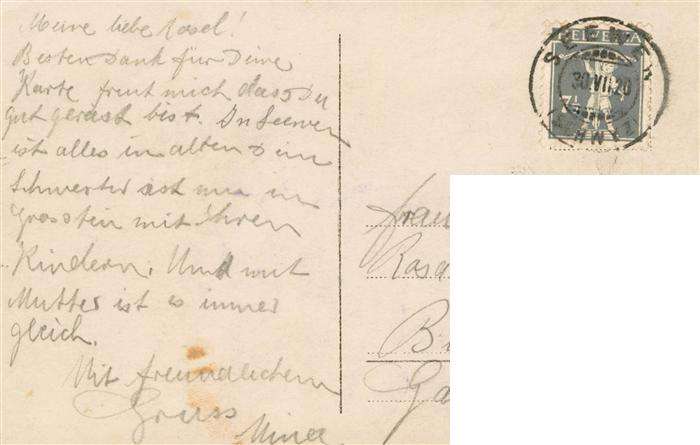 Meine liebe Rosel!
Besten Dank für Deine
Karte freut mich dass Du
gut gereist bist. In Seewen
ist alles in alten
Schwester ist nun in
mit ihren
Kindern. Und mit
Mutter ist es immer
gleich.
Mit freundlichem
Gruss
HELVETIA
7½
SEEWEN
30.VII.20
SCHWYZ
Frau
Rosa